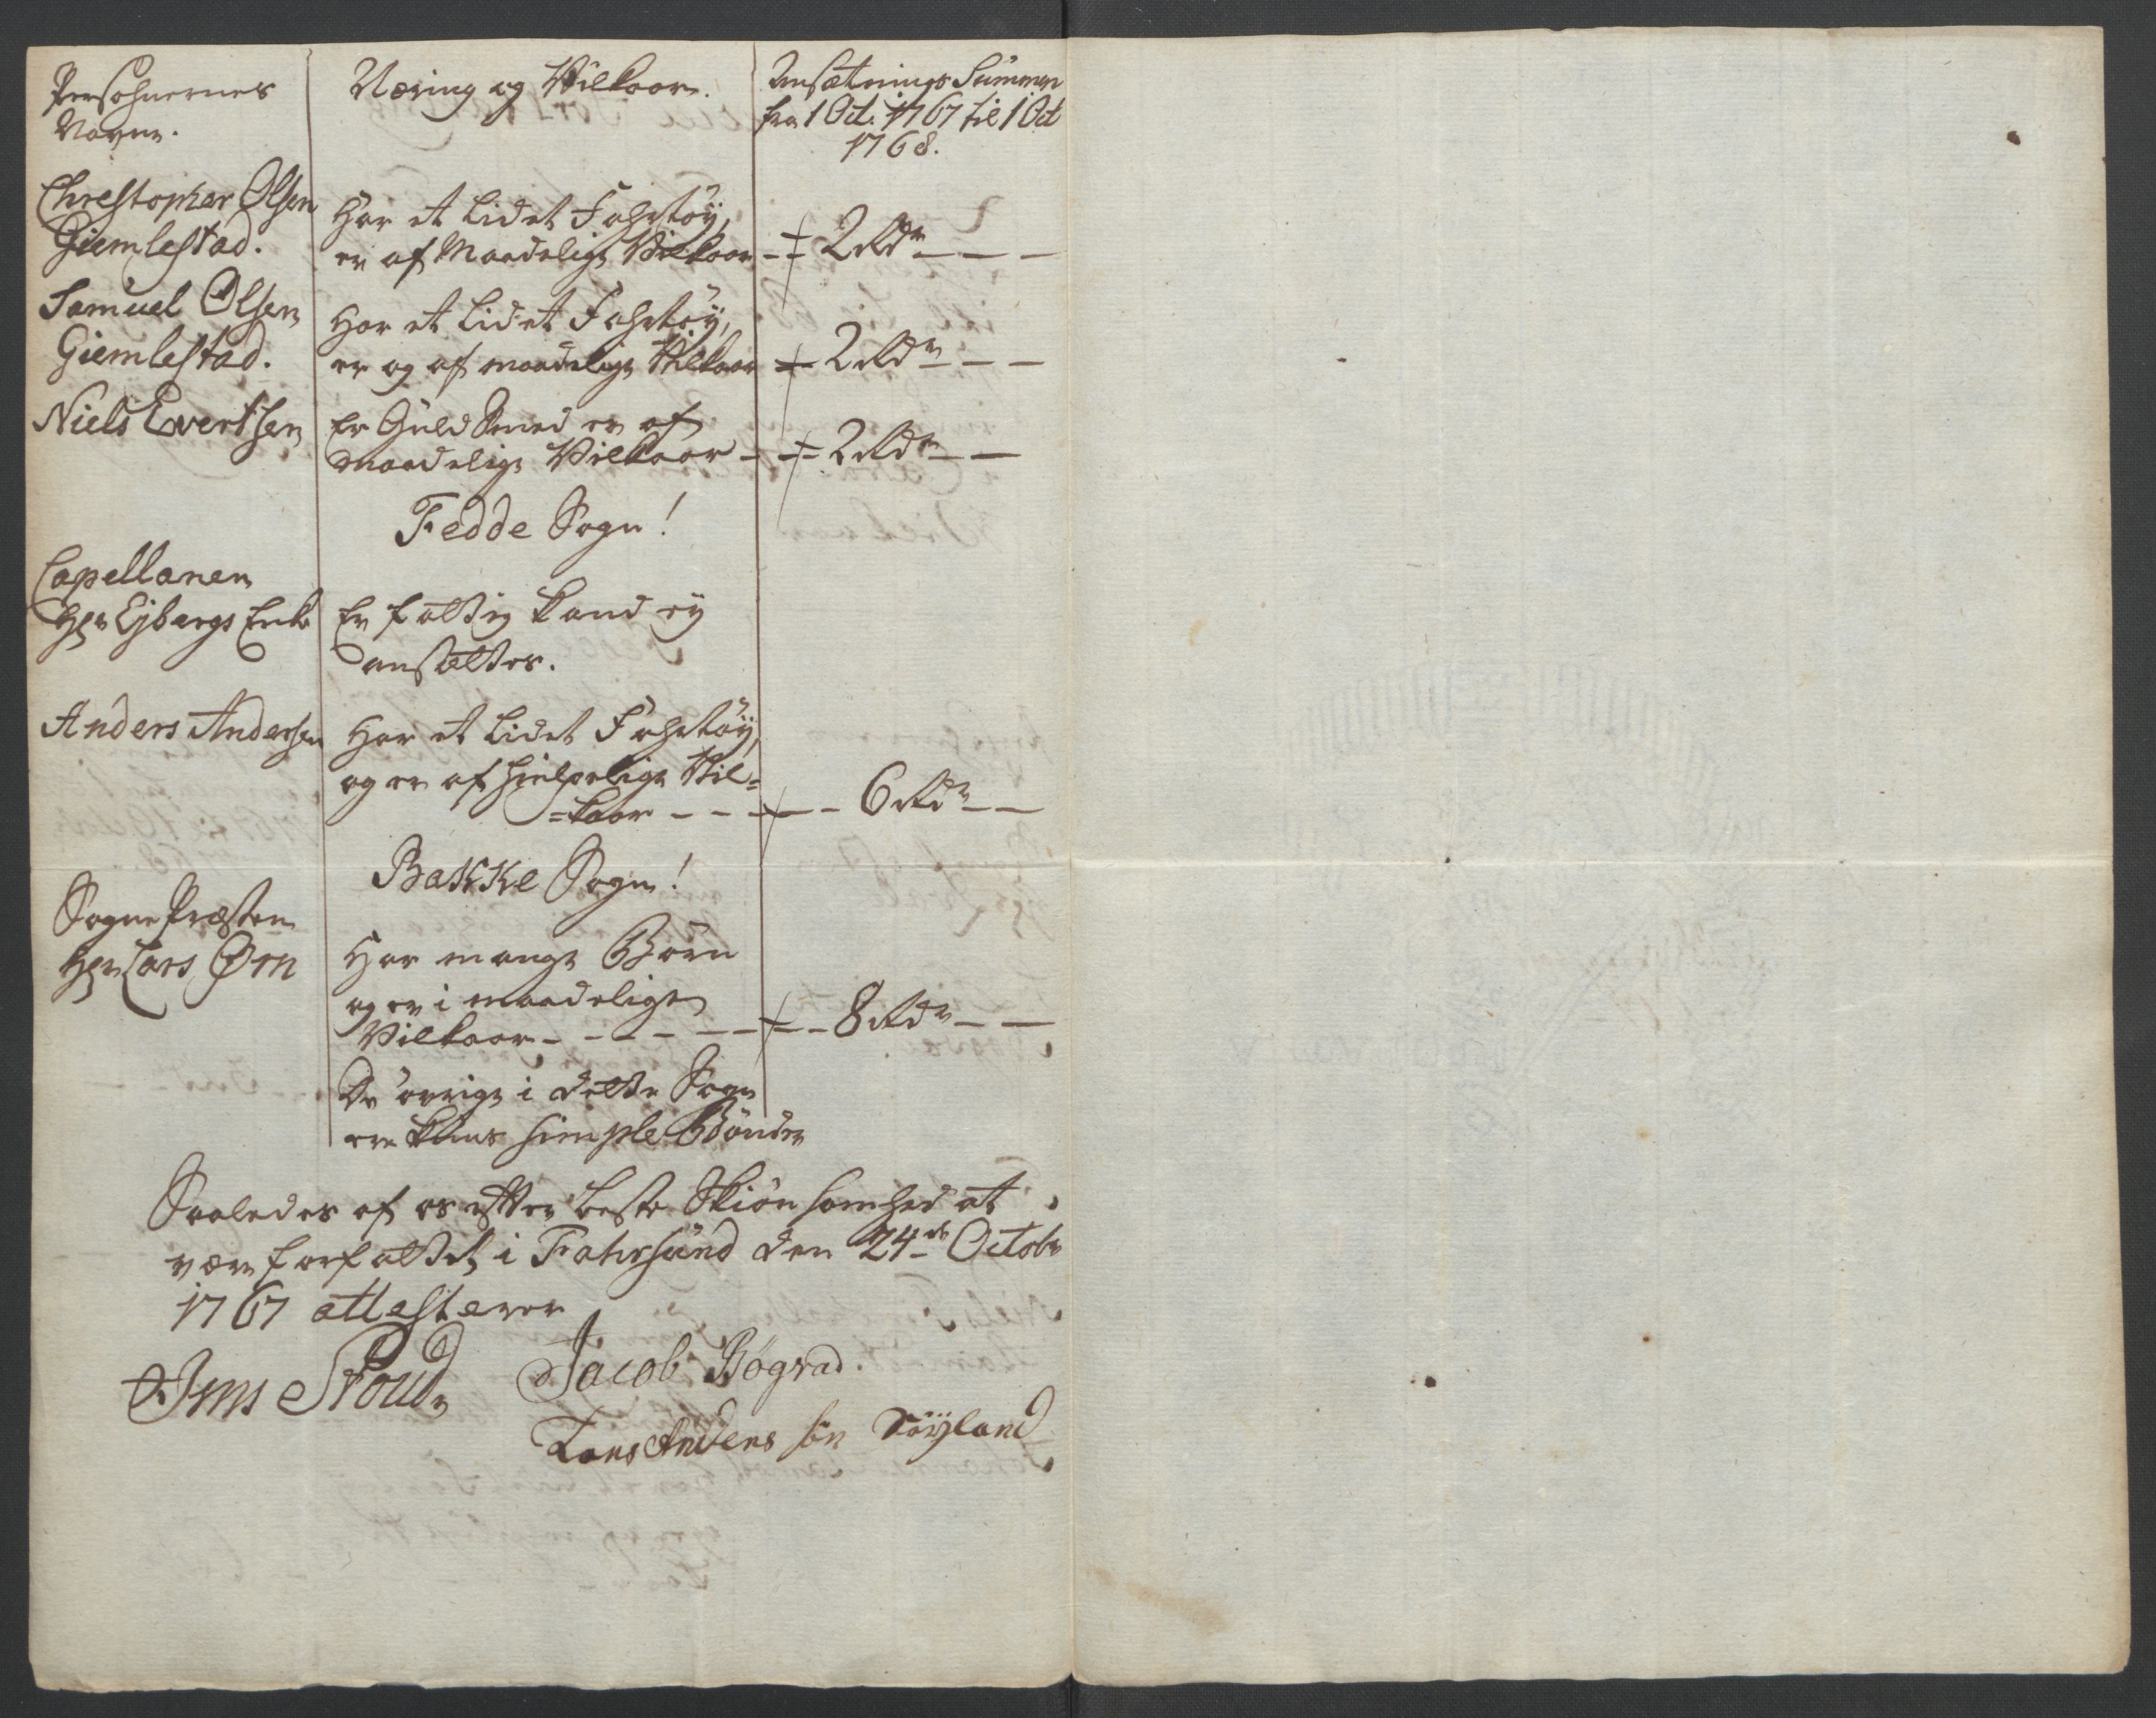 Persohnernes
Navne.
Næring og Vilkaar.
Ansætnings Summen
fra 1 Oct. 1767 til 1 Oct
1768.
Christopher Olsen
Giemlestad.
Har et lidet Fahrtøy,
er af Maadelige Vilkaar - - 2 Rdr - -
Samuel Olsen
Giemlestad.
Har et Lidet Fahrtøy,
er og af maadelige Vilkaar - 2 Rdr - -
Niels Evertsen
Er Guld Smed er af
maadelige Vilkaar - - 2 Rdr - -
Fedde Sogn!
Capellanen
Hr Ejbergs Enke
Er fattig kand ey
ansættes.
Anders Andersen
Har et Lidet Fahrtøy,
og er af hielpelige Vil=
=kaar - - - - 6 Rdr - -
Bakke Sogn!
Sogne Præsten
Hr Lars Ørn
Har mange Børn
og er i maadelige
Vilkaar - - - - - - - 8 Rdr - -
De øvrige i dette Sogn
ere kuns simple Bønder
Saaledes af os efter beste Skiønsomhed at
være forfattet i Fahrsund den 24de Octobr
1767 attesterer
Jens Stoud
Jacob Røgvad.
Lars Anders søn Søyland